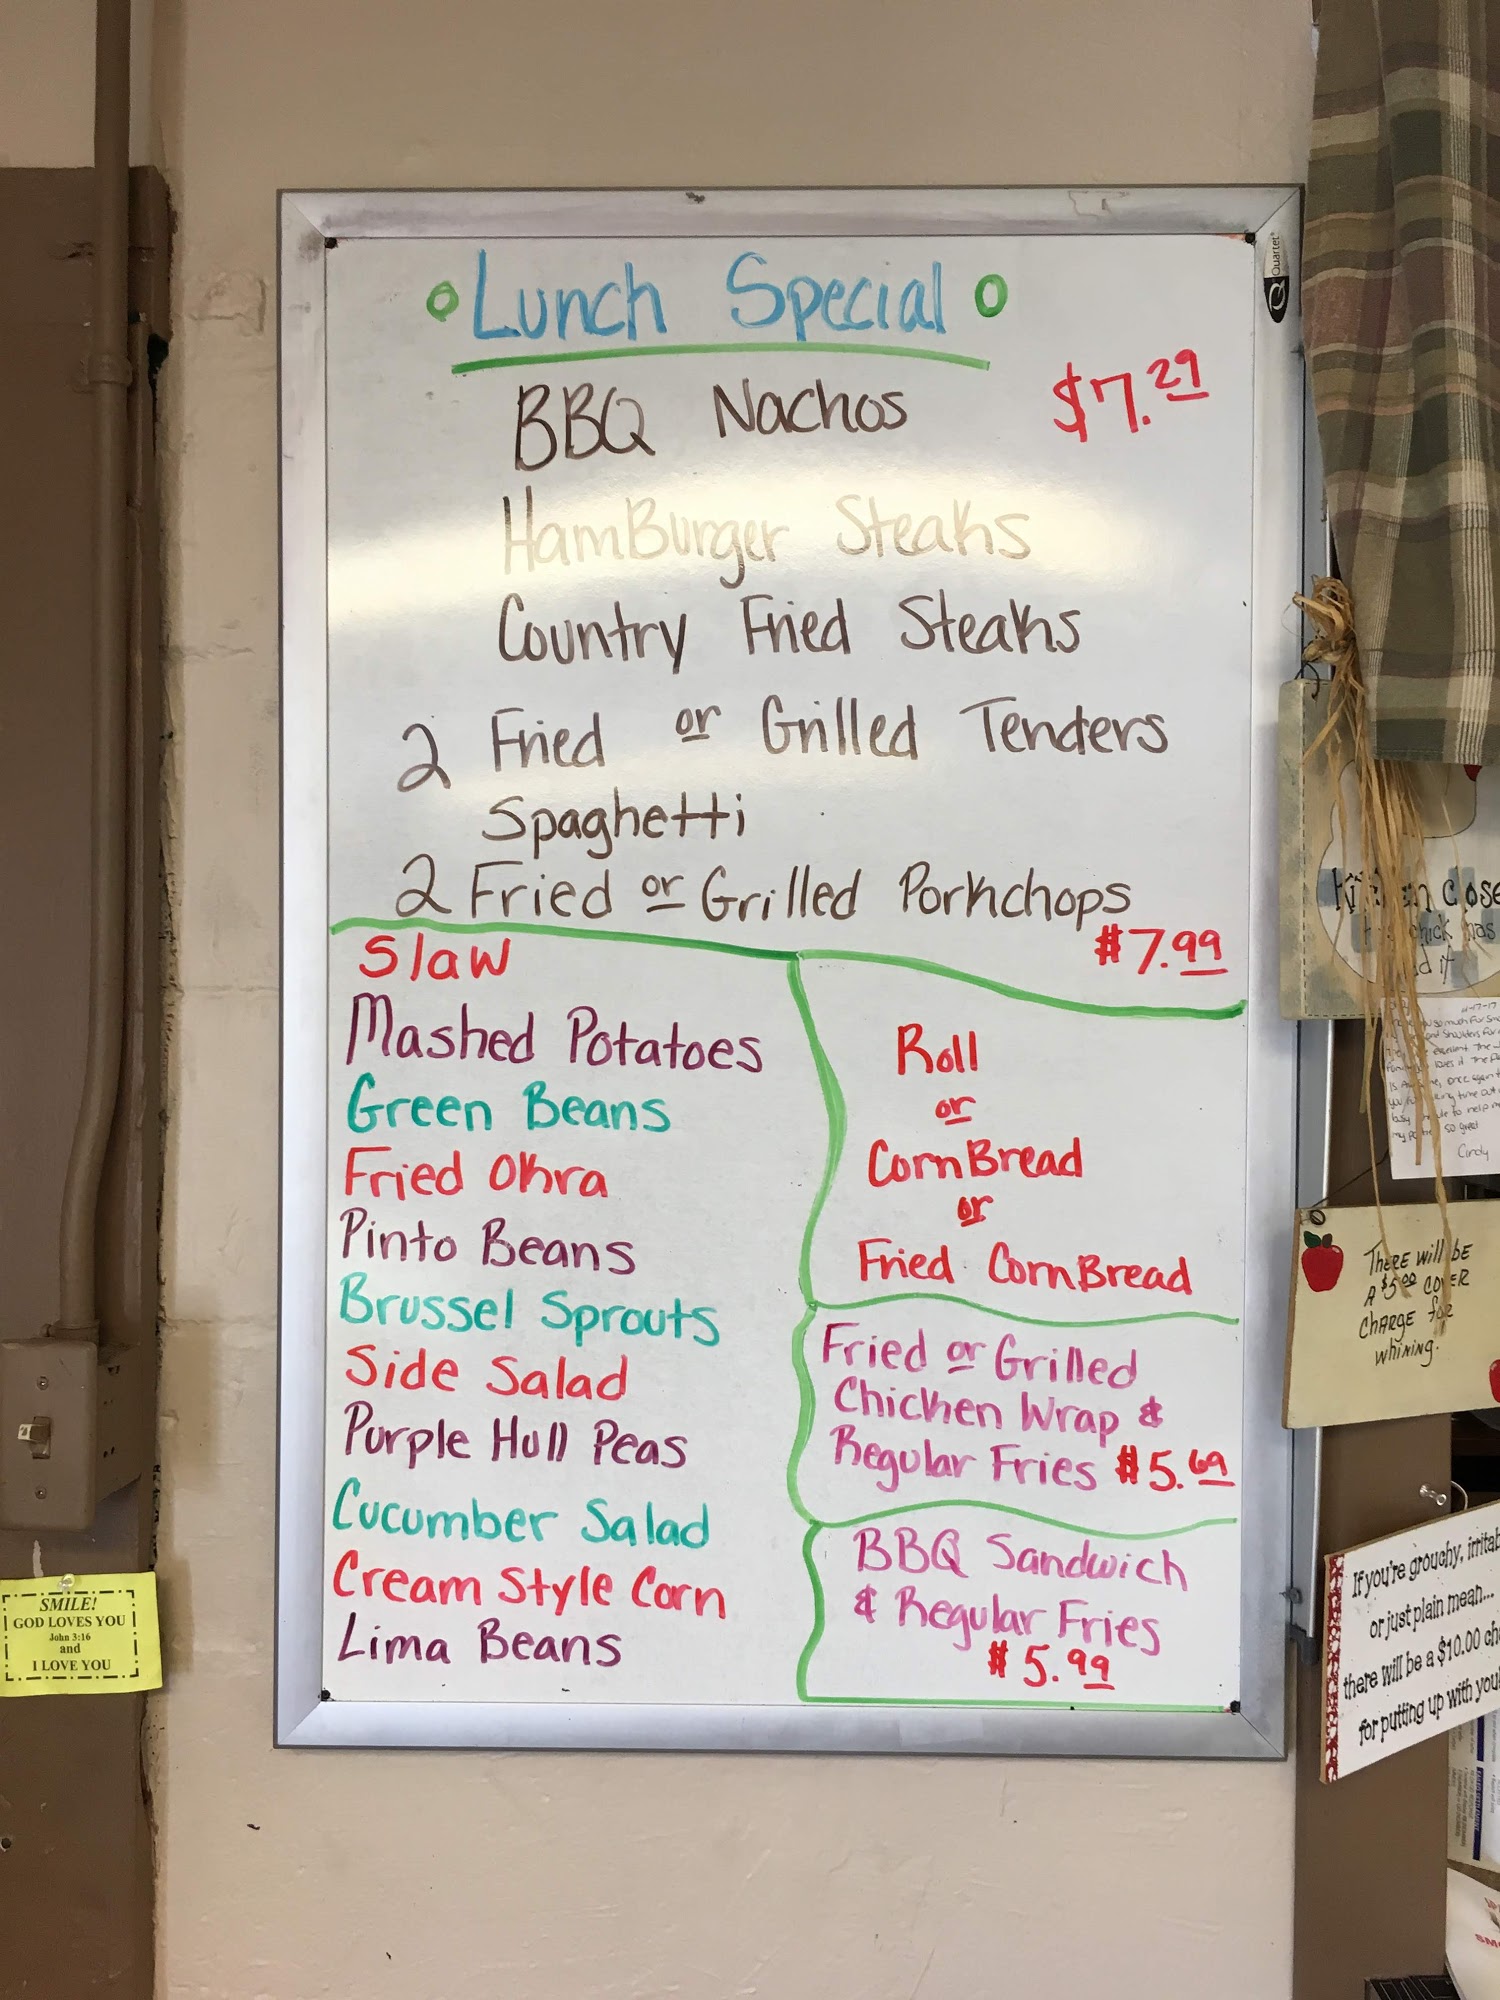 Lunch Special
BBQ Nachos $7.29
HamBurger Steaks
Country Fried Steaks
2 Fried or Grilled Tenders
Spaghetti
2 Fried or Grilled Porkchops
$7.99
Slaw
Mashed Potatoes
Green Beans
Fried Okra
Pinto Beans
Brussel Sprouts
Side Salad
Purple Hull Peas
Cucumber Salad
Cream Style Corn
Lima Beans
Roll
or
CornBread
or
Fried CornBread
Fried or Grilled
Chicken Wrap &
Regular Fries $5.69
BBQ Sandwich
& Regular Fries
$5.99
Quartet
SMILE!
GOD LOVES YOU
John 3:16
and
I LOVE YOU
close
chick has
Cindy
THERE will BE
A $5.00 COVER
CHARGE for
whining.
If you're grouchy,
or just plain mean...
there will be a $10.00
for putting up with